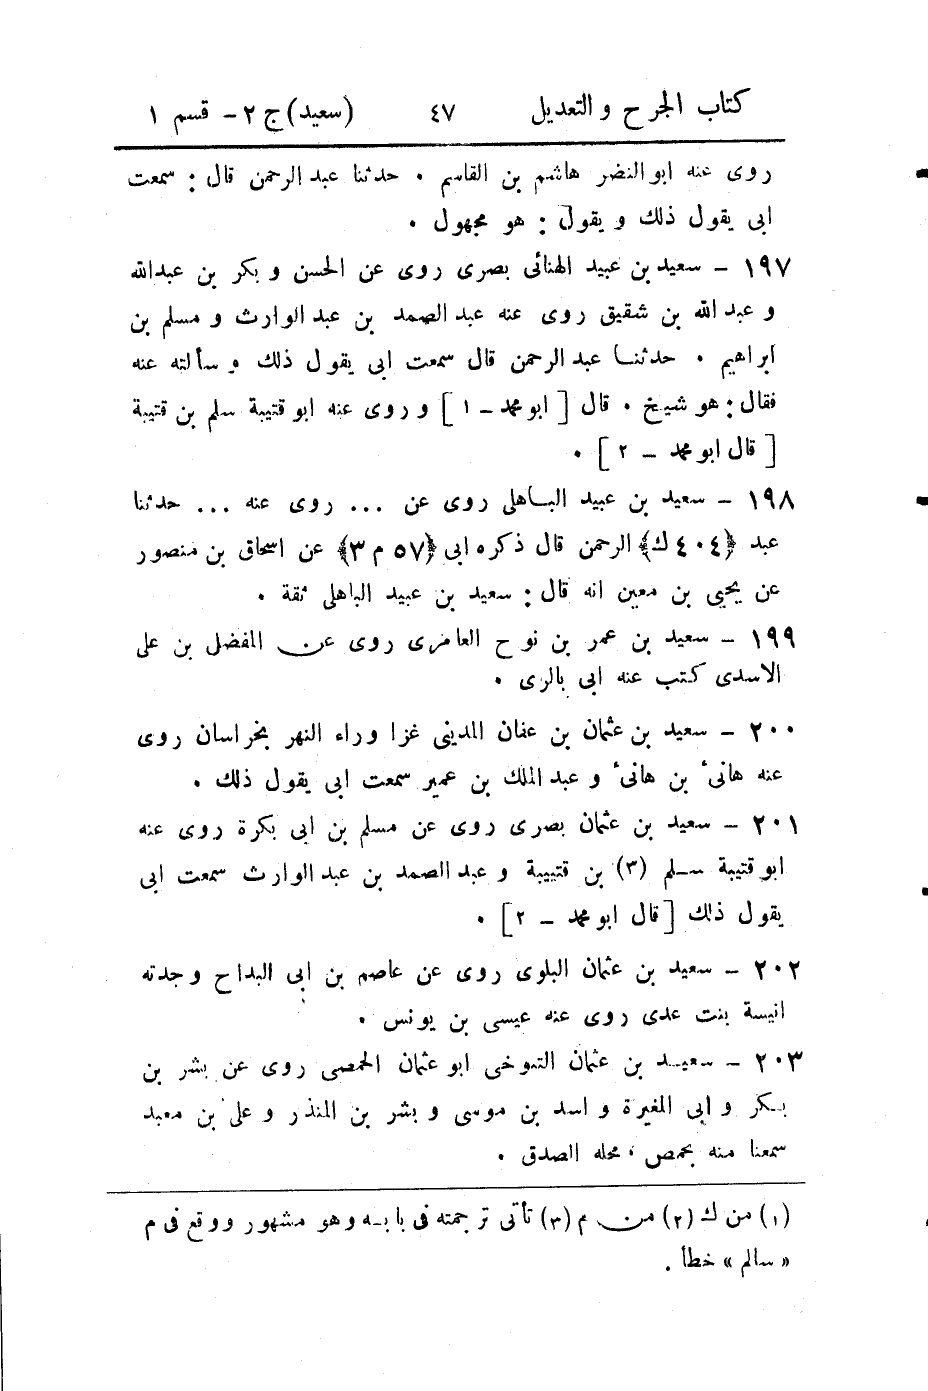 كتاب الجرح والتعديل ٤٧ (سعيد) ج ٢ – قسم ١
روى عنه ابو النضر هاشم بن القاسم . حدثنا عبد الرحمن قال : سمعت
ابى يقول ذلك و يقول : هو مجهول .
١٩٧ – سعيد بن عبيد الهنائى بصرى روى عن الحسن و بكر بن عبدالله
و عبد الله بن شقيق روى عنه عبد الصمد بن عبد الوارث و مسلم بن
ابراهيم . حدثنا عبد الرحمن قال سمعت ابى يقول ذلك و سألته عنه
فقال : هو شيخ . قال [ ابو محمد – ١ ] و روى عنه ابو قتيبة سلم بن قتيبة
[ قال ابو محمد – ٢ ] .
١٩٨ – سعيد بن عبيد الباهلى روى عن ... روى عنه ... حدثنا
عبد ﴿٤٠٤ ك﴾ الرحمن قال ذكره ابى ﴿٥٧ م ٣﴾ عن اسحاق بن منصور
عن يحيى بن معين انه قال : سعيد بن عبيد الباهلى ثقة .
١٩٩ – سعيد بن عمر بن نوح العامرى روى عن المفضل بن على
الاسدى كتب عنه ابى بالرى .
٢٠٠ – سعيد بن عثمان بن عفان المدينى غزا وراء النهر بخراسان روى
عنه هانىء بن هانىء و عبد الملك بن عمير سمعت ابى يقول ذلك .
٢٠١ – سعيد بن عثمان بصرى روى عن مسلم بن ابى بكرة روى عنه
ابو قتيبة سلم (٣) بن قتيبة و عبد الصمد بن عبد الوارث سمعت ابى
يقول ذلك [ قال ابو محمد – ٢ ] .
٢٠٢ – سعيد بن عثمان البلوى روى عن عاصم بن ابى البداح و جدته
انيسة بنت عدى روى عنه عيسى بن يونس .
٢٠٣ – سعيد بن عثمان التنوخى ابو عثمان الحمصى روى عن بشر بن
بكر و ابى المغيرة و اسد بن موسى و بشر بن المنذر و على بن معبد
سمعنا منه بحمص ، محله الصدق .
(١) من ك (٢) من م (٣) تأتى ترجمته فى بابه وهو مشهور ووقع فى م
« سالم » خطأ .